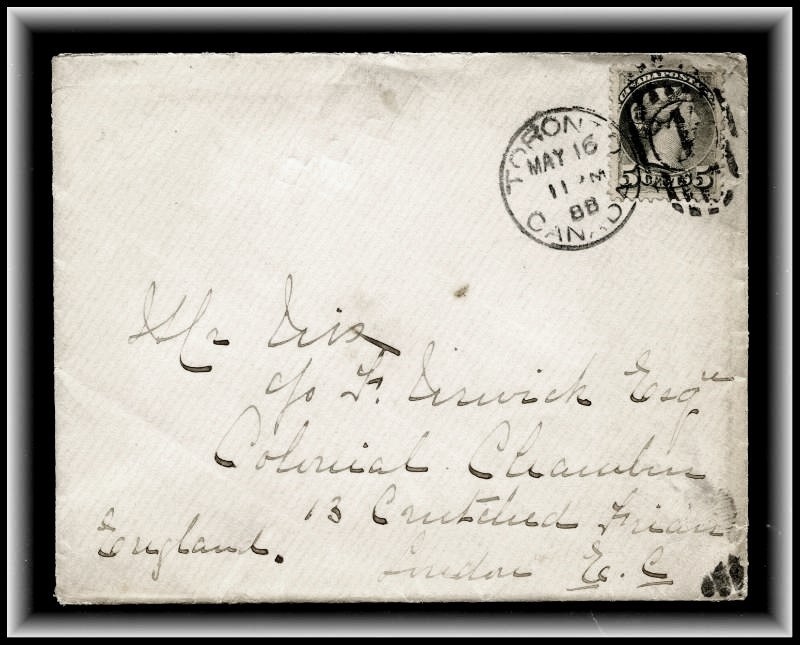 CANADA POSTAGE
5 CENTS 5
TORONTO
MAY 16
11 PM
88
CANADA
Mr
c/o F. Esqre
Colonial Chambers
13 Crutched Friars
London E.C
England.